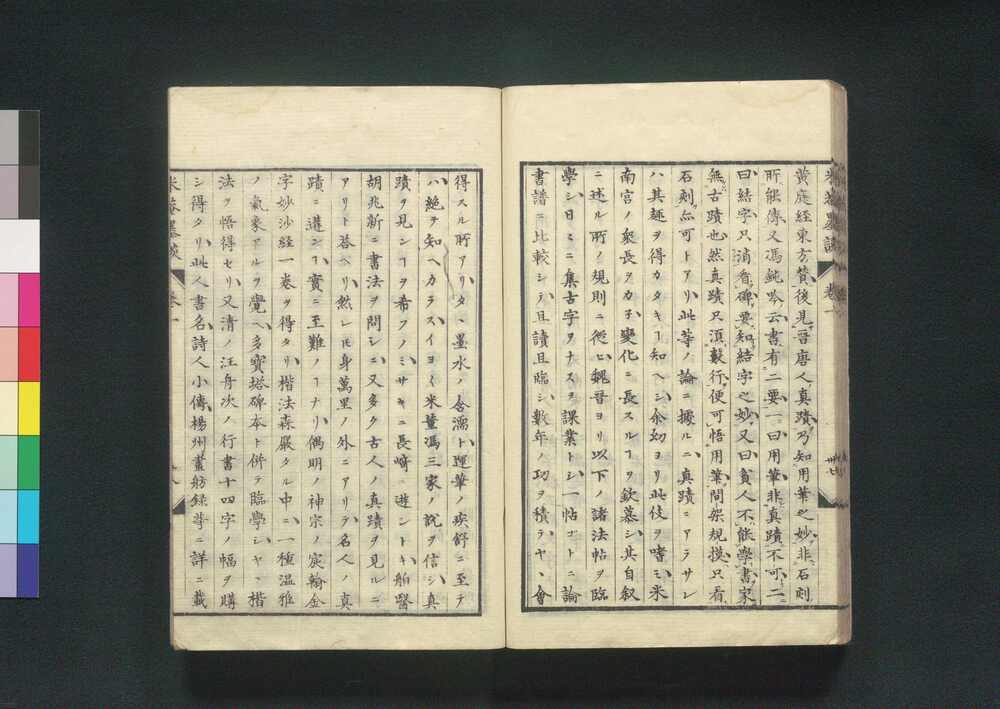 米菴墨談 卷一
黄庭経東方賛後見晋唐人真蹟乃知用筆之妙非石刻
所能傳又馮鈍吟云書有二要一曰用筆非真蹟不可二
曰結字只消看碑要知結字之妙又曰貧人不能學書家
無古蹟也然真蹟只須數行便可悟用筆間架規摸只看
石刻亦可トアリ此等ノ論ニ據ルニ真蹟ニアラサレ
ハ其趣ヲ得カタキヿ知ヘシ余幼ヨリ此伎ヲ嗜ミ米
南宮ノ衆長ヲカ子變化ニ長スルヿヲ欽慕シ其自叙
ニ述ル所ノ規則ニ従ヒ魏晉ヨリ以下ノ諸法帖ヲ臨
學シ日ヒニ集古字ヲナスヲ課業トシ一帖コトニ論
書譜ニ比較シテ且讀且臨シ數年ノ功ヲ積テヤヽ會
得スル所アリタヽ墨水ノ含濡ト運筆ノ疾舒ニ至テ
ハ絶テ知ヘカラスイヨイヨ米董馮三家ノ說ヲ信シ真
蹟ヲ見ンヿヲ希フノミサキニ長崎ニ遊ントキ舶醫
胡兆新ニ書法ヲ問シニ又多ク古人ノ真蹟ヲ見ルニ
アリト荅ヘリ然レ𪜈身萬里ノ外ニアリテ名人ノ真
蹟ニ遭ンヿ實ニ至難ノヿナリ偶明ノ神宗ノ宸翰金
字妙沙経一卷ヲ得タリ楷法森嚴タル中ニ一種温雅
ノ氣象アルヲ覺ヘ多寳塔碑本ト併テ臨學シヤヽ楷
法ヲ悟得セリ又清ノ汪舟次ノ行書十四字ノ幅ヲ購
シ得タリ此人書名詩人小傳楊州畫舫録等ニ詳ニ載
米菴墨談 卷一